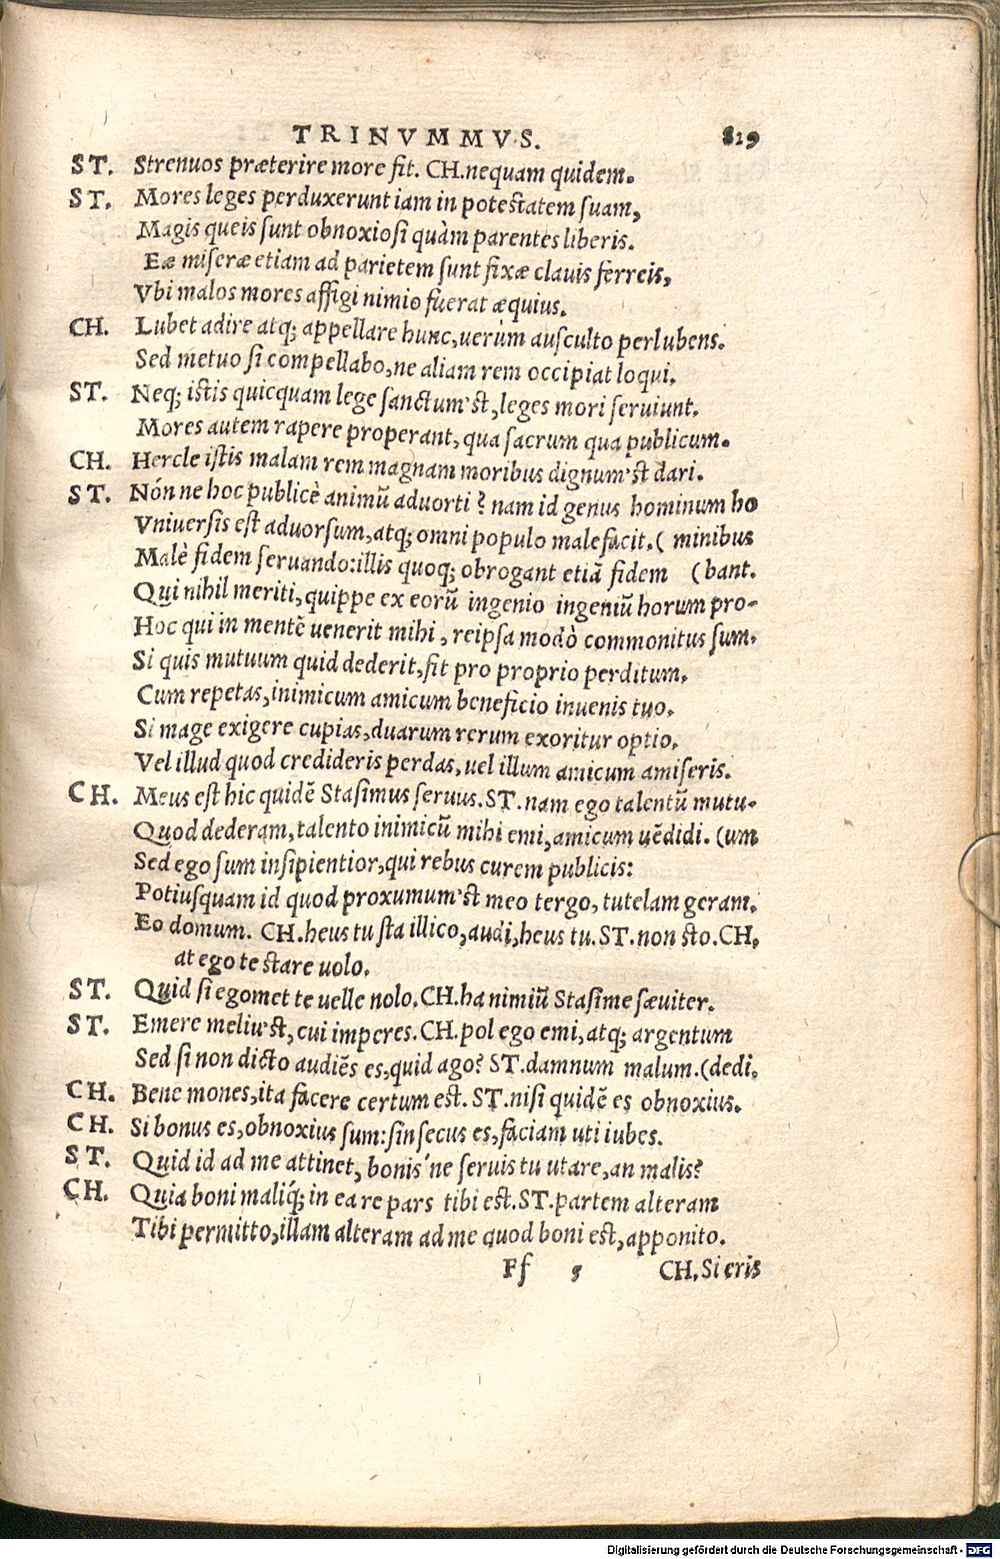 TRINVMMVS. 819
ST. Strenuos præterire more fit. CH.nequam quidem.
ST. Mores leges perduxerunt iam in potestatem suam,
Magis queis sunt obnoxiosi quàm parentes liberis.
Eæ miseræ etiam ad parietem sunt fixæ clauis ferreis,
Vbi malos mores affigi nimio fuerat æquius.
CH. Lubet adire atq; appellare hunc,uerùm ausculto perlubens.
Sed metuo si compellabo,ne aliam rem occipiat loqui.
ST. Neq; istis quicquam lege sanctum'st,leges mori seruiunt.
Mores autem rapere properant,qua sacrum qua publicum.
CH. Hercle istis malam rem magnam moribus dignum'st dari.
ST. Nón ne hoc publicè animū aduorti? nam id genus hominum ho
Vniuersis est aduorsum,atq; omni populo male facit.( minibus
Malè fidem seruando:illis quoq; obrogant etiā fidem (bant.
Qui nihil meriti,quippe ex eorū ingenio ingeniū horum pro-
Hoc qui in mentē uenerit mihi, reipsa modò commonitus sum.
Si quis mutuum quid dederit,fit pro proprio perditum.
Cum repetas,inimicum amicum beneficio inuenis tuo.
Si mage exigere cupias,duarum rerum exoritur optio.
Vel illud quod credideris perdas,uel illum amicum amiseris.
CH. Meus est hic quidē Stasimus seruus.ST.nam ego talentū mutu-
Quod dederam,talento inimicū mihi emi,amicum uēdidi. (um
Sed ego sum insipientior,qui rebus curem publicis:
Potiusquam id quod proxumum'st meo tergo, tutelam geram.
Eo domum. CH.heus tu sta illico,audi,heus tu.ST.non sto.CH.
at ego te stare uolo.
ST. Quid si egomet te uelle nolo.CH.ha nimiū Stasime sæuiter.
ST. Emere meliu'st,cui imperes.CH.pol ego emi,atq; argentum
Sed si non dicto audiēs es,quid ago? ST.damnum malum.(dedi.
CH. Bene mones,ita facere certum est. ST.nisi quidē es obnoxius.
CH. Si bonus es,obnoxius sum:sin secus es,faciam uti iubes.
ST. Quid id ad me attinet, bonis'ne seruis tu utare,an malis?
CH. Quia boni maliq́; in ea re pars tibi est.ST.partem alteram
Tibi permitto,illam alteram ad me quod boni est,apponito.
Ff 5 CH.Si eris
Digitalisierung gefördert durch die Deutsche Forschungsgemeinschaft - DFG